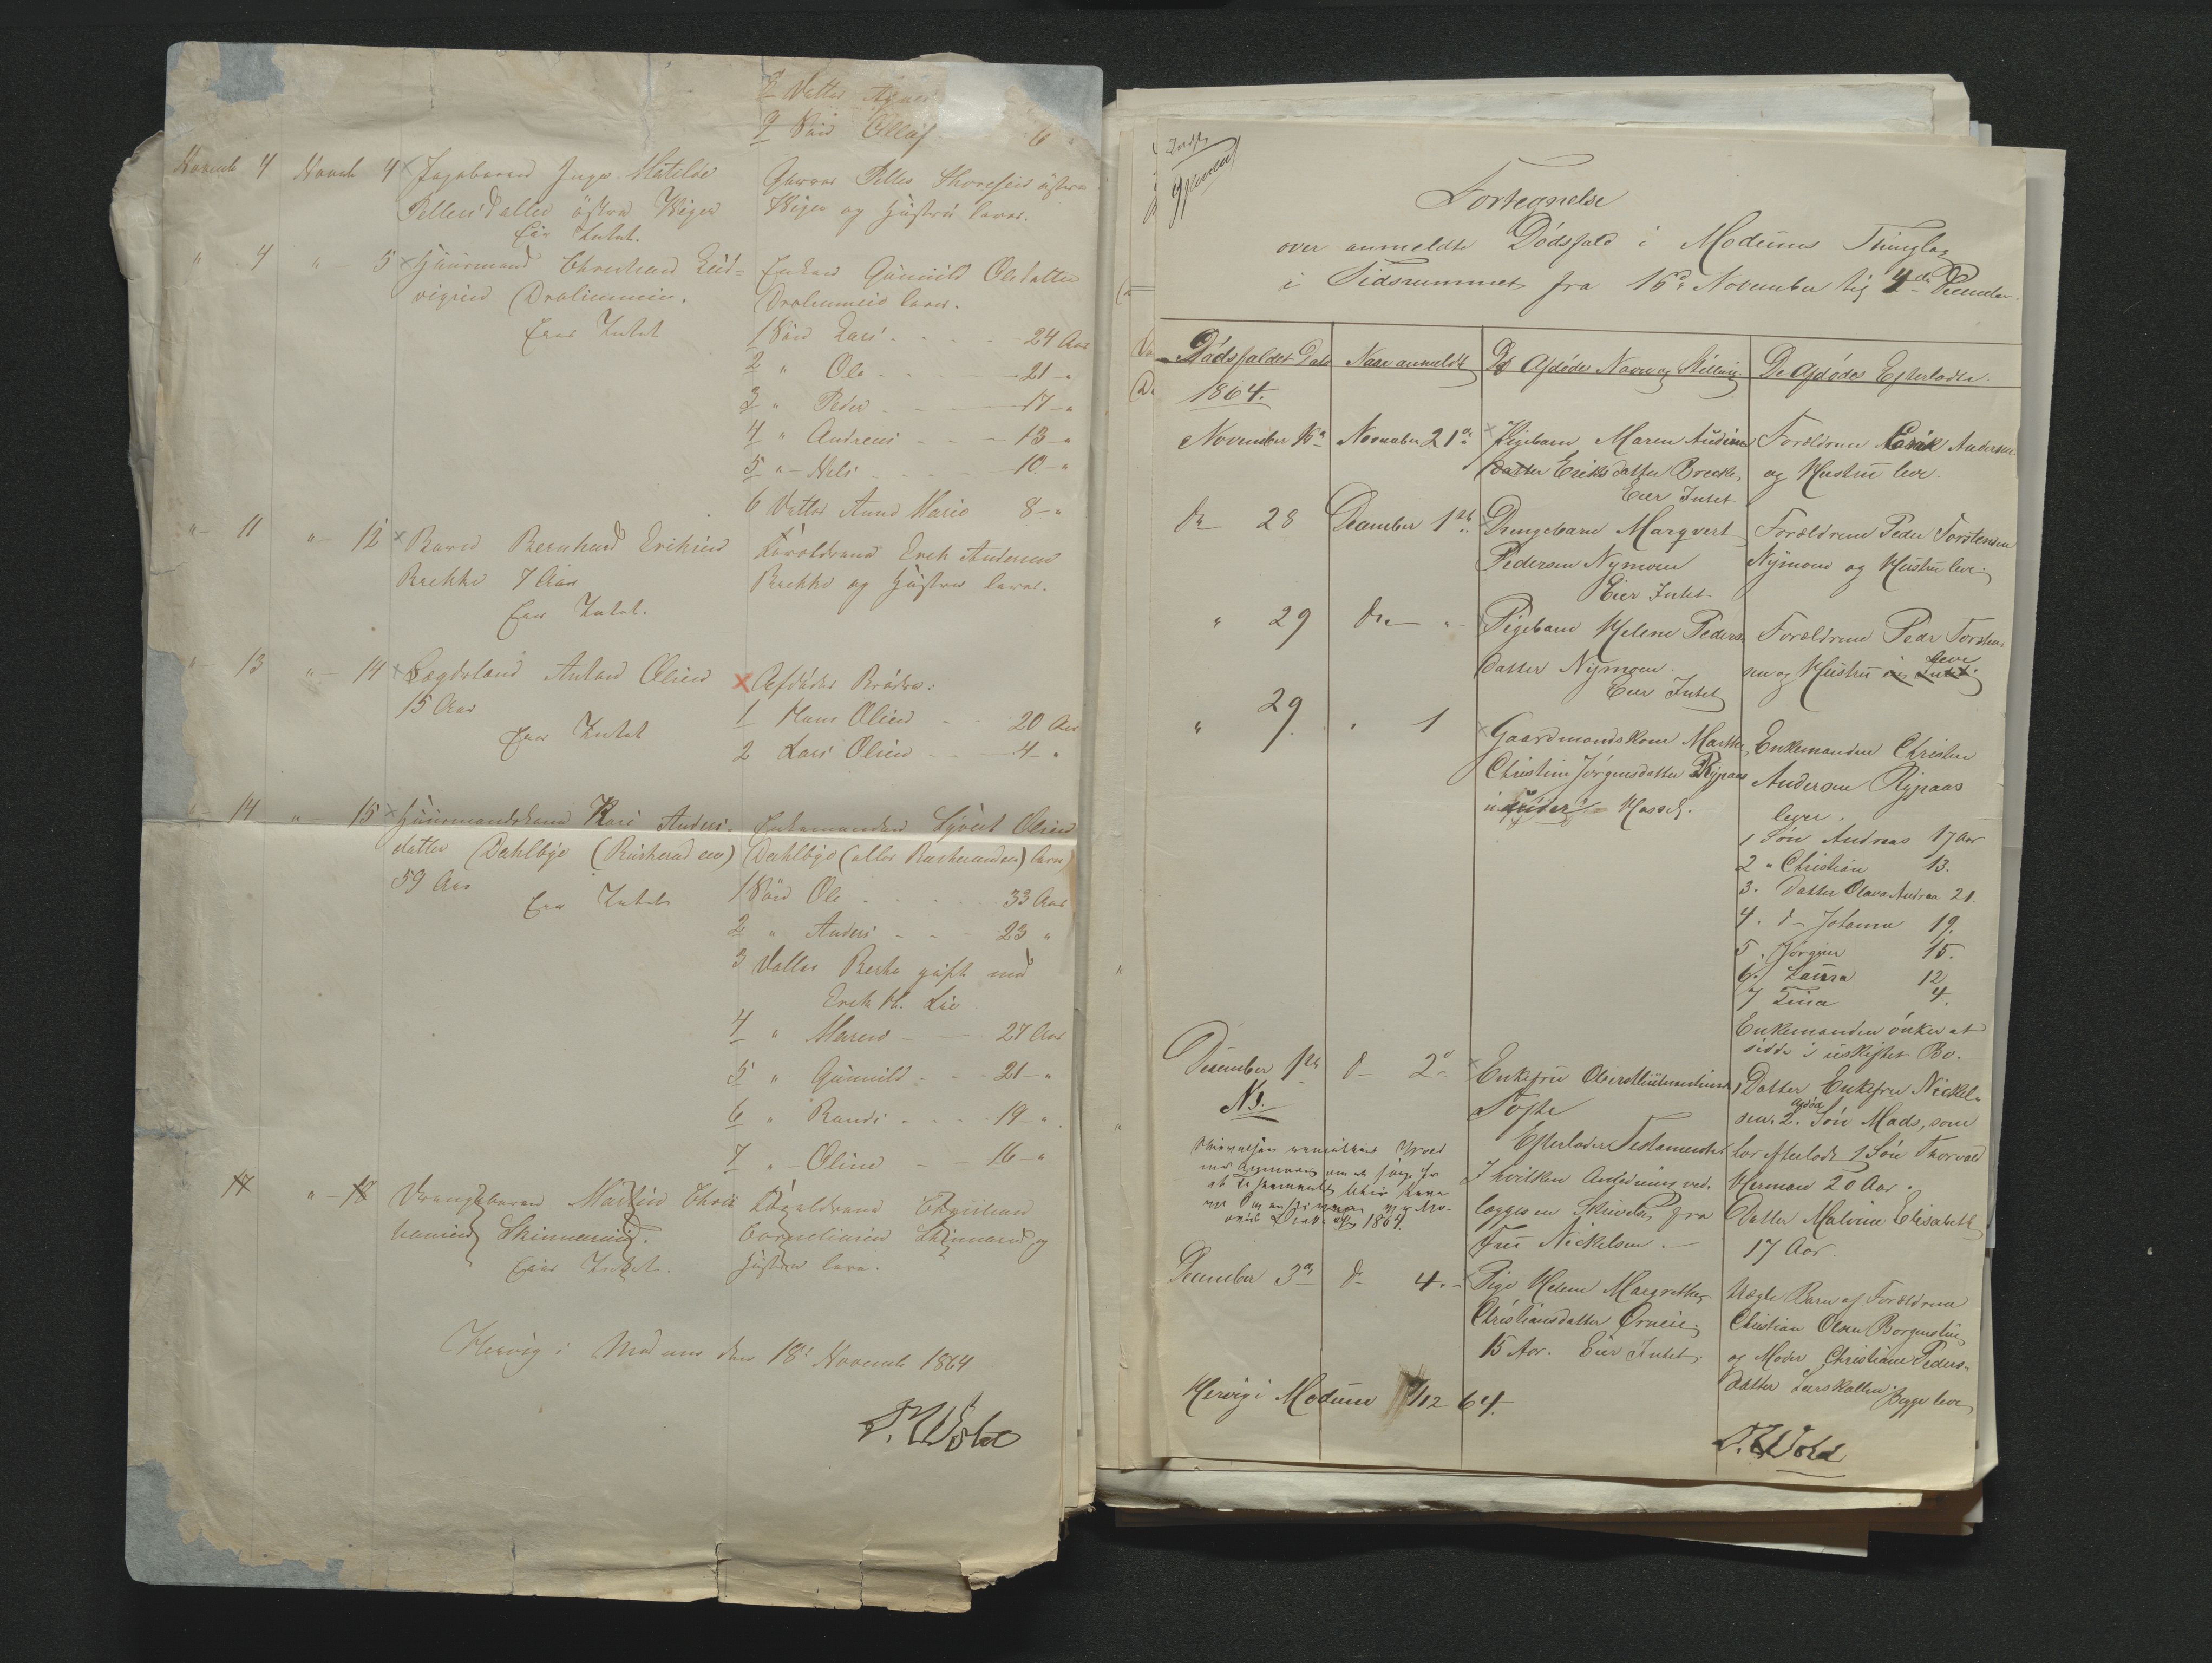 2 Datter Agnes
9 Søn Olluf 6 "
Novemb 4 Novemb 4 Pigebarnet Inger Matilde
Pettersdatter østre Wiger
Eier Intet.
Gaardm Petter Thoresen østre
Wiger og Hustru lever.
" 4 " 5 Huusmand Christian Lud-
vigsen Draliemmeie.
Eier Intet
Enken Gunnild Olesdatter
Dralemmeie lever.
1 Søn Lars 24 Aar
2 " Ole 21 "
3 " Peder 17 "
4 " Andreas 13 "
5 " Nils 10 "
6 Datter Anne Marie 8 "
" 11 " 12 Barnet Bernhard Eriksen
Brekke 7 Aar
Eier Intet.
Forældrene Erek Andersen
Brekke og Hustru lever.
" 13 " 14 Lægdsland Anton Olsen
15 Aar
Eier Intet
Afdødes Brødre:
1 Hans Olsen 20 Aar
2 Lars Olsen 4 "
" 14 " 15 Huusmandskone Kari Anders-
datter Dahlbye (Ruskerud eie)
59 Aar
Eier Intet
Enkemanden Syvert Olsen
Dahlbye (eller Ruskerudeie) lever
1 Søn Ole 33 Aar
2 " Anders 23 "
3 Datter Berthe gift med
Erek H. Lie
4 " Maren 27 Aar
5 " Gunnild 21 "
6 " Randi 19 "
7 " Oline 16 "
17 " 18 Drengebarnet Martin Chris
tiansen Skinnerud.
Eier Intet.
Forældrene Christian
Corneliusen Skinnerud og
Hustru lever.
Hervig i Modum den 18de Novemb 1864
T. Wold
Fortegnelse
over anmeldte Dødsfald i Modums Thinglag
i Tidsrummet fra 16de November til 4de December.
Dødsfaldets Dato Naar anmeldt De Afdødes Navn og Stilling De Afdødes Efterladte.
1864.
November 16de November 21de Pigebarn Maren Audine
datter Eriksdatter Brecke,
Eier Intet
Forældrene Erik Andersen
og Hustru leve.
do 28 December 1ste Drengebarn Marqvert
Pedersen Nymoen
Eier Intet
Forældrene Peder Torstensen
Nymoen og Hustru leve.
" 29 do " Pigebarn Helene Peders-
datter Nymoen.
Eier Intet
Forældrene Peder Torsten-
sen og Hustru eier Intet leve
" 29. " 1 Gaardmandskone Marthe
Christine Jørgensdatter Rypaas
under Hassel.
Enkemanden Christen
Andersen Rypaas
lever.
1 Søn Andreas 17 Aar
2 " Christian 13.
3. Datter Olava Andrea 21.
4. d- Johanne 19.
5. Jørgine 15.
6. Laura 12
7 Lina 4.
Enkemanden ønsker at
sidde i uskiftet Bo.
December 1ste d- 2de Enkefru Oberstlieutenantinde
Tofte
Efterlader Testamentet
I hvilken Anledning ved-
lægges en Skrivelse fra
Fru Nickelsen.
1 Datter Enkefru Nickel-
sen. 2. afdød Søn Mads, som
har efterladt 1 Søn Thorvald
Herman 20 Aar.
Datter Malvine Elisabeth
17 Aar.
NB.
1864.
December 3de d- 4. Pige Helene Margrethe
Christiansdatter Ørneie.
15 Aar. Eier Intet.
Uægte Barn af Forældrene
Christian Olsen Borgerstue
og Moder Christiane Peders-
datter Leerskallen. Begge leve
Hervig i Modum /12 64.
T. Wold